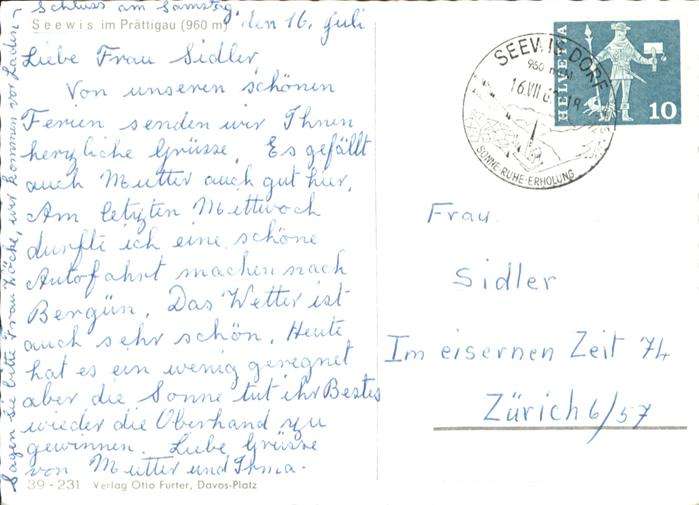 Seewis im Prättigau (960 m) den 16. Juli
Liebe Frau Sidler,
Von unseren schönen
Ferien senden wir Ihnen
herzliche Grüsse. Es gefällt
auch Mutter auch gut hier.
Am letzten Mittwoch
durfte ich eine schöne
Autofahrt machen nach
Bergün. Das Wetter ist
auch sehr schön. Heute
hat es ein wenig geregnet
aber die Sonne tut ihr Bestes
wieder die Oberhand zu
gewinnen. Liebe Grüsse
von Mutter und Irma.
Sagen sie bitte Frau Zöche, wir kommen vor Laden-
Schluss am Samstag.
39-231 Verlag Otto Furter, Davos-Platz
SEEWIS DORF
960 m
16.VII
SONNE-RUHE-ERHOLUNG
HELVETIA
10
Frau
Sidler
Im eisernen Zeit 74
Zürich 6/57